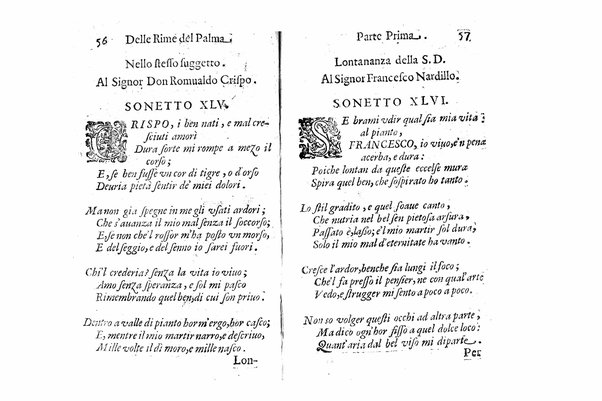 56 Delle Rime del Palma.
Nello stesso suggetto.
Al Signor Don Romualdo Crispo.
SONETTO XLV.
CRISPO, i ben nati, e mal cre-
sciuti amori
Dura sorte mi rompe a mezo il
corso;
E, se ben fusse un cor di tigre, o d'orso
Deuria pietà sentir de' miei dolori.
Ma non già spegne in me gli usati ardori;
Che s'auanza il mio mal senza il soccorso;
E, se non che'l rossor m'ha posto un morso,
E del seggio, e del senno io sarei fuori.
Chi'l crederia? senza la vita io viuo;
Amo senza speranza, e sol mi pasco
Rimembrando quel ben, di cui son priuo.
Dentro a valle di pianto hor m'ergo, hor casco;
E, mentre il mio martir narro, e descriuo,
Mille volte il dì moro, e mille nasco.
Lon-
Parte Prima. 57
Lontananza della S.D.
Al Signor Francesco Nardillo.
SONETTO XLVI.
SE brami vdir qual sia mia vita
al pianto,
FRANCESCO, io viuo, e'n pena
acerba, e dura:
Poiche lontan da queste eccelse mura
Spira quel ben, che sospirato ho tanto.
Lo stil gradito, e quel soaue canto,
Che nutria nel bel sen pietosa arsura,
Passato è, lasso; e'l mio martir sol dura,
Solo il mio mal d'eternitate ha vanto.
Cresce l'ardor, benche sia lungi il foco;
Che'l fa presso il pensier, ne con qual'arte
Vedo, e strugger mi sento a poco a poco.
Non so volger questi occhi ad altra parte,
Ma dico ogn'hor fisso a quel dolce loco:
Quant'aria dal bel viso mi diparte.
Per